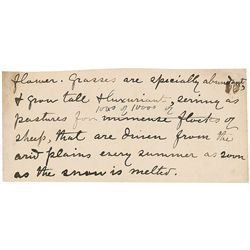 flower. Grasses are specially abundant,
& grow tall & luxuriant, serving as
pastures for immense flocks of
1000s of 1000s of
sheep, that are driven from the
arid plains every summer as soon
as the snow is melted.